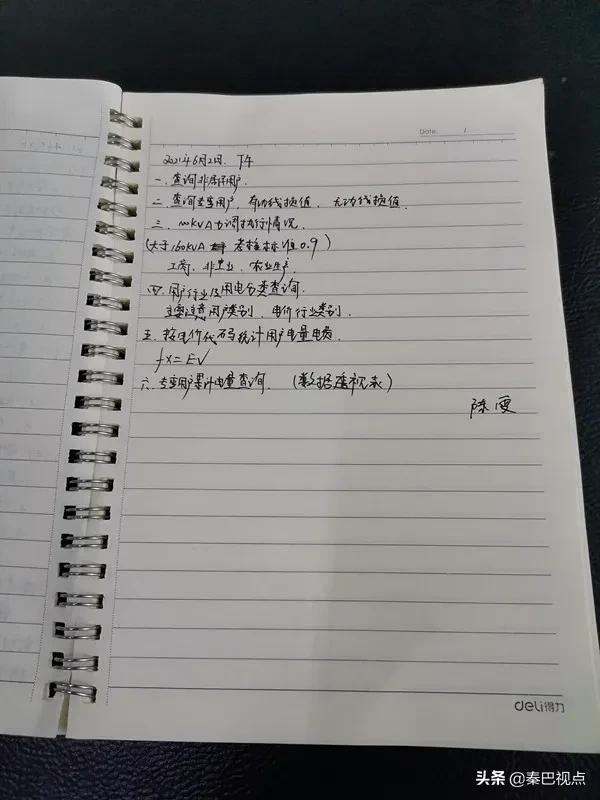 Date. /
2021年6月2日. 下午
一. 查询非居民用户.
二. 查询专变用户, 有功线损值, 无功线损值.
三. 100KVA力调执行情况.
(大于160KVA 考核标准值0.9)
工商、非工业、农业生产.
四. 用户行业及用电分类查询.
主要注意用户类别、电价行业类别.
五. 按电价代码统计用户电量电费.
fx=EV
六. 专变用户累计电量查询. (数据透视表)
陈
deli得力
头条 @秦巴视点